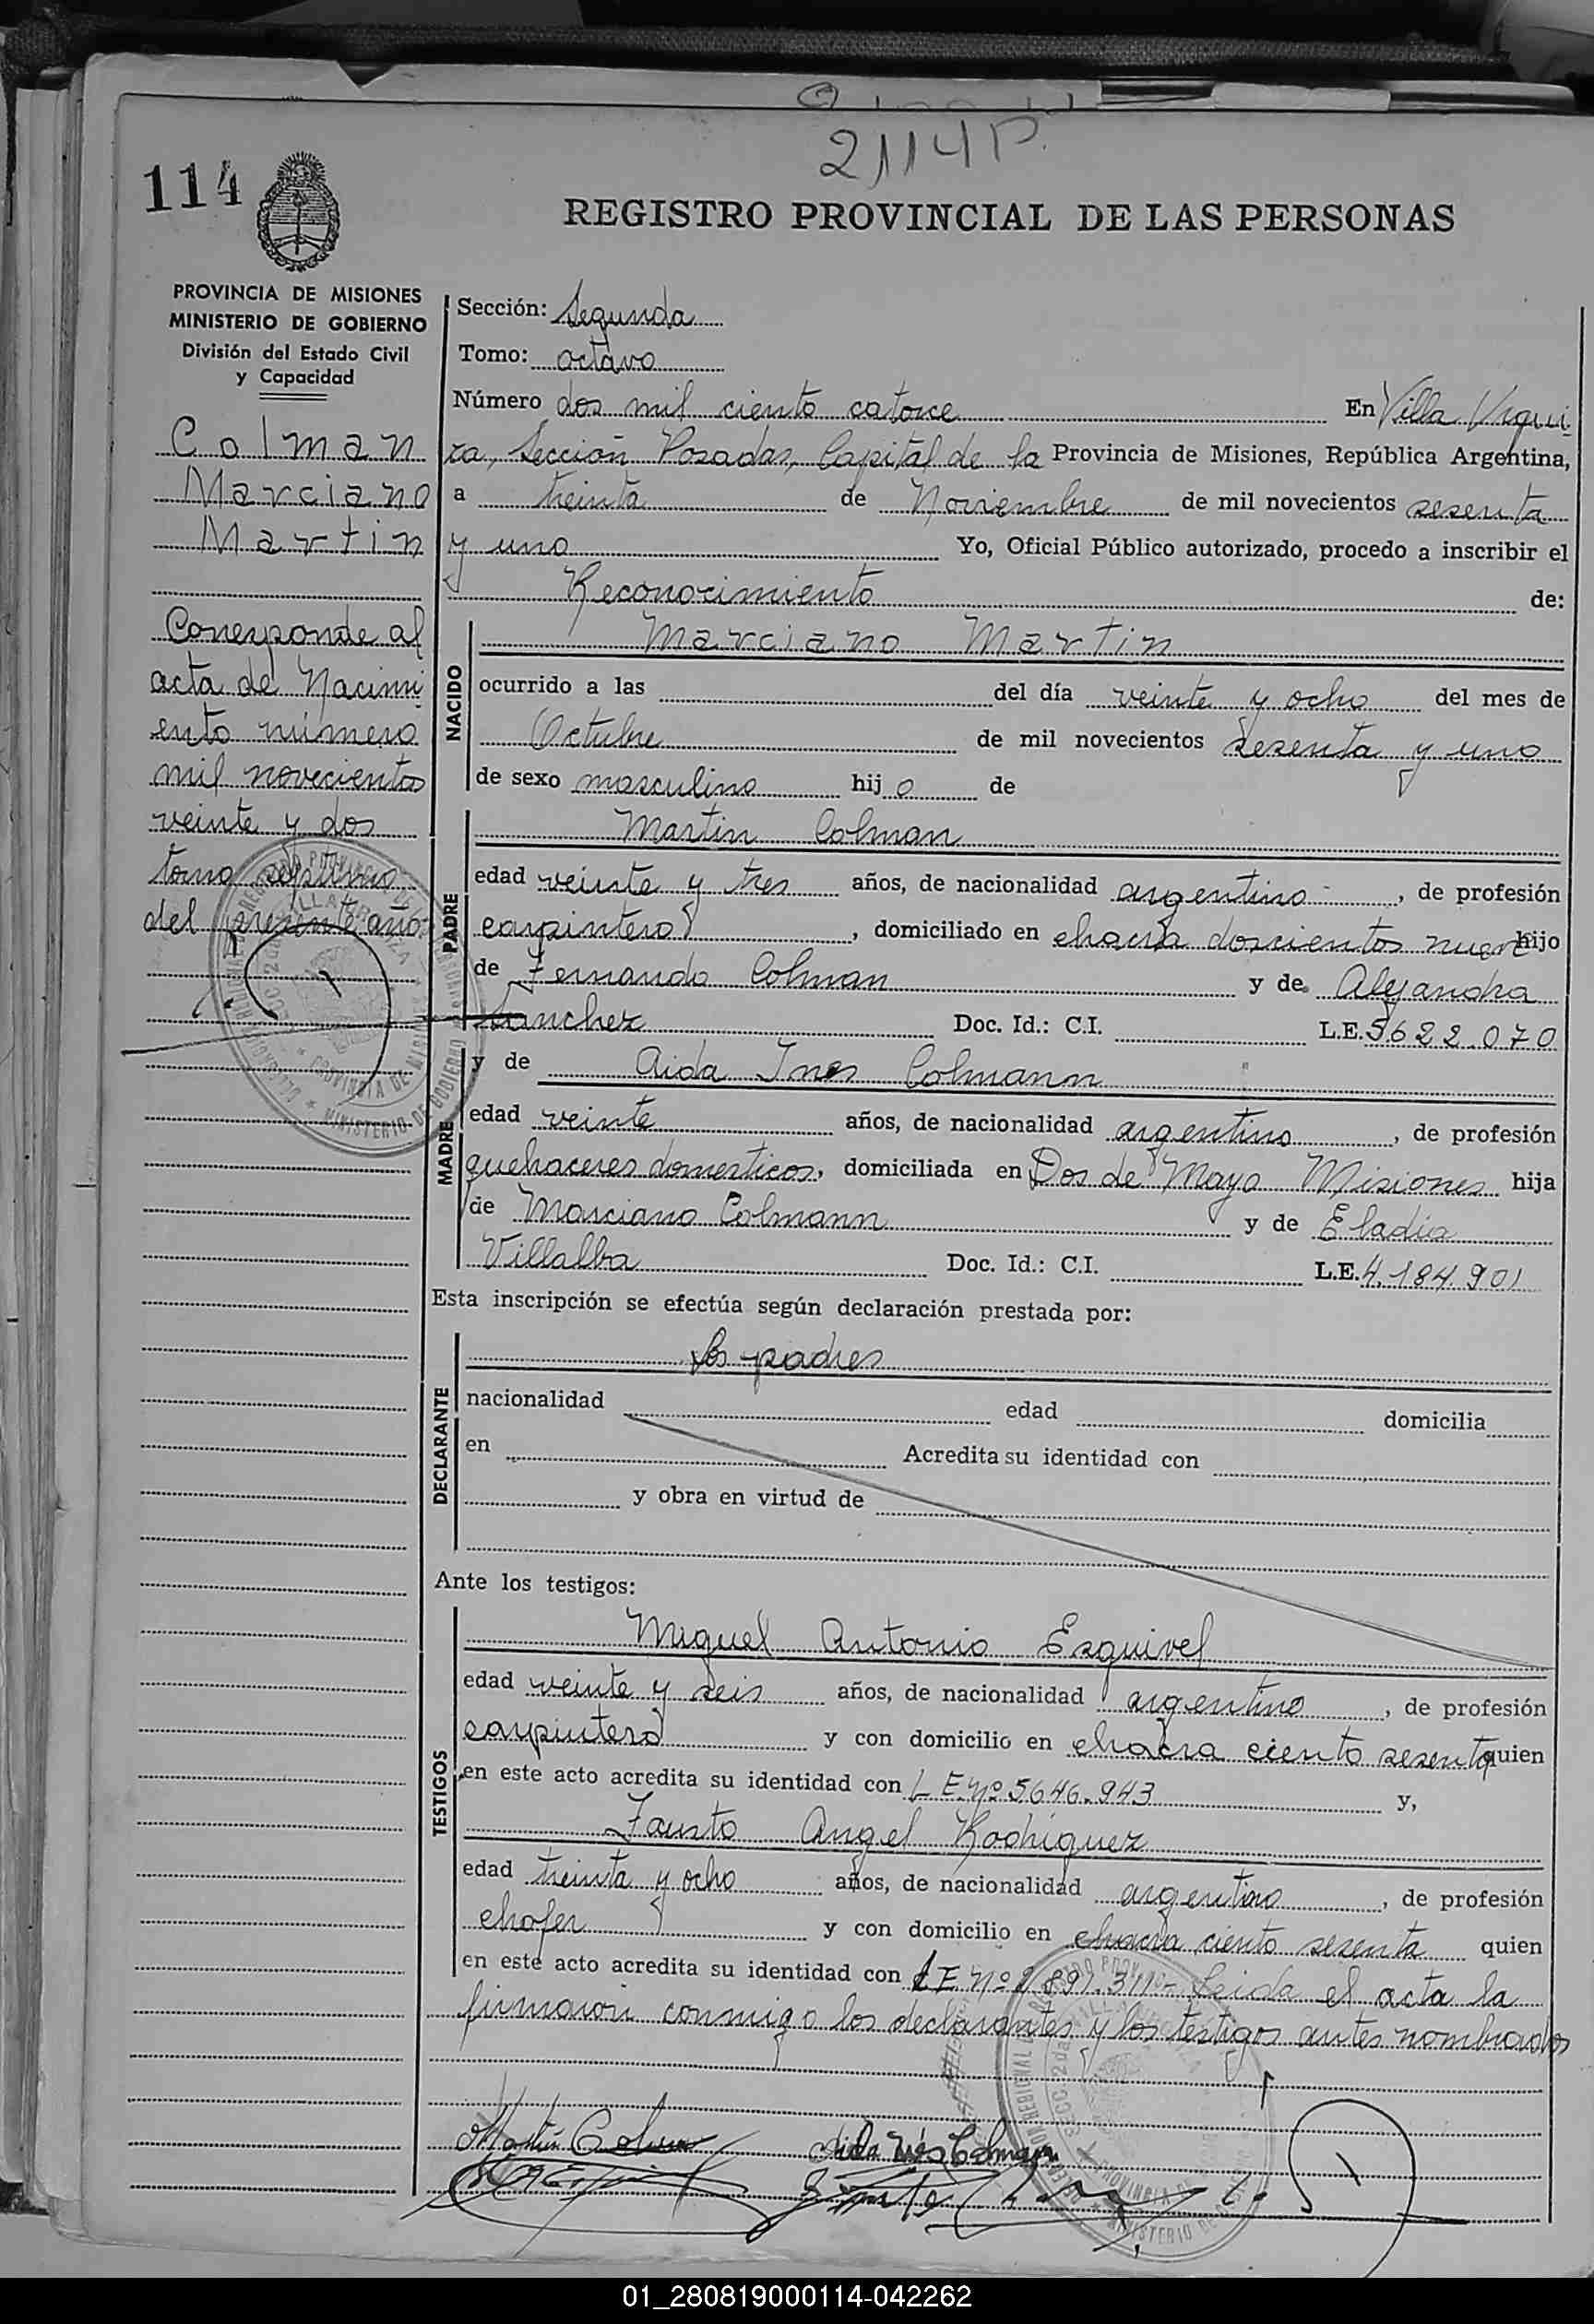 2114 P.
114
REGISTRO PROVINCIAL DE LAS PERSONAS
PROVINCIA DE MISIONES
MINISTERIO DE GOBIERNO
División del Estado Civil
y Capacidad
Colman
Marciano
Martin
Corresponde al
acta de Nacimi
ento número
mil novecientos
veinte y dos
tomo septimo
del presente año
Sección: Segunda
Tomo: octavo
Número dos mil ciento catorce En Villa Urqui
za, Sección Posadas, Capital de la Provincia de Misiones, República Argentina,
a treinta de Noviembre de mil novecientos sesenta
y uno Yo, Oficial Público autorizado, procedo a inscribir el
Reconocimiento de:
NACIDO
Marciano Martin
ocurrido a las del día veinte y ocho del mes de
Octubre de mil novecientos sesenta y uno
de sexo masculino hijo de
PADRE
Martin Colman
edad veinte y tres años, de nacionalidad argentino, de profesión
carpintero, domiciliado en chacra doscientos nueve hijo
de Fernando Colman y de Alejandra
Sanchez Doc. Id.: C.I. L.E. 5622.070
MADRE
y de Aida Ines Colmann
edad veinte años, de nacionalidad argentino, de profesión
quehaceres domesticos, domiciliada en Dos de Mayo Misiones hija
de Marciano Colmann y de Eladia
Villalba Doc. Id.: C.I. L.E. 4.184.901
Esta inscripción se efectúa según declaración prestada por:
DECLARANTE
los padres
nacionalidad edad domicilia
en Acredita su identidad con
y obra en virtud de
Ante los testigos:
TESTIGOS
Miguel Antonio Esquivel
edad veinte y seis años, de nacionalidad argentino, de profesión
carpintero y con domicilio en chacra ciento sesenta quien
en este acto acredita su identidad con L E. Nº 5646.943 y,
Fausto Angel Rodriguez
edad treinta y ocho años, de nacionalidad argentino, de profesión
chofer y con domicilio en chacra ciento sesenta quien
en este acto acredita su identidad con L E Nº 891.311- Leida el acta la
firmaron conmigo los declarantes y los testigos antes nombrados
Martin Colman Aida Inés Colmann
01_280819000114-042262